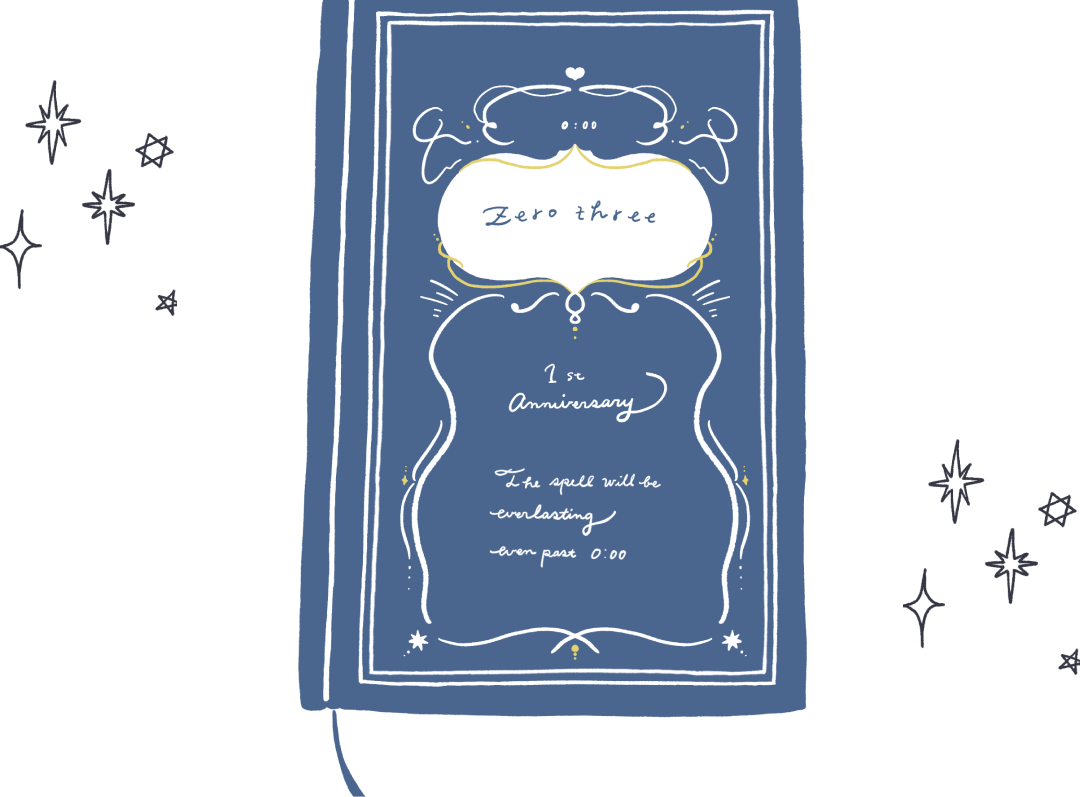 0:00
Zero three
1st
Anniversary
The spell will be
everlasting
even past 0:00